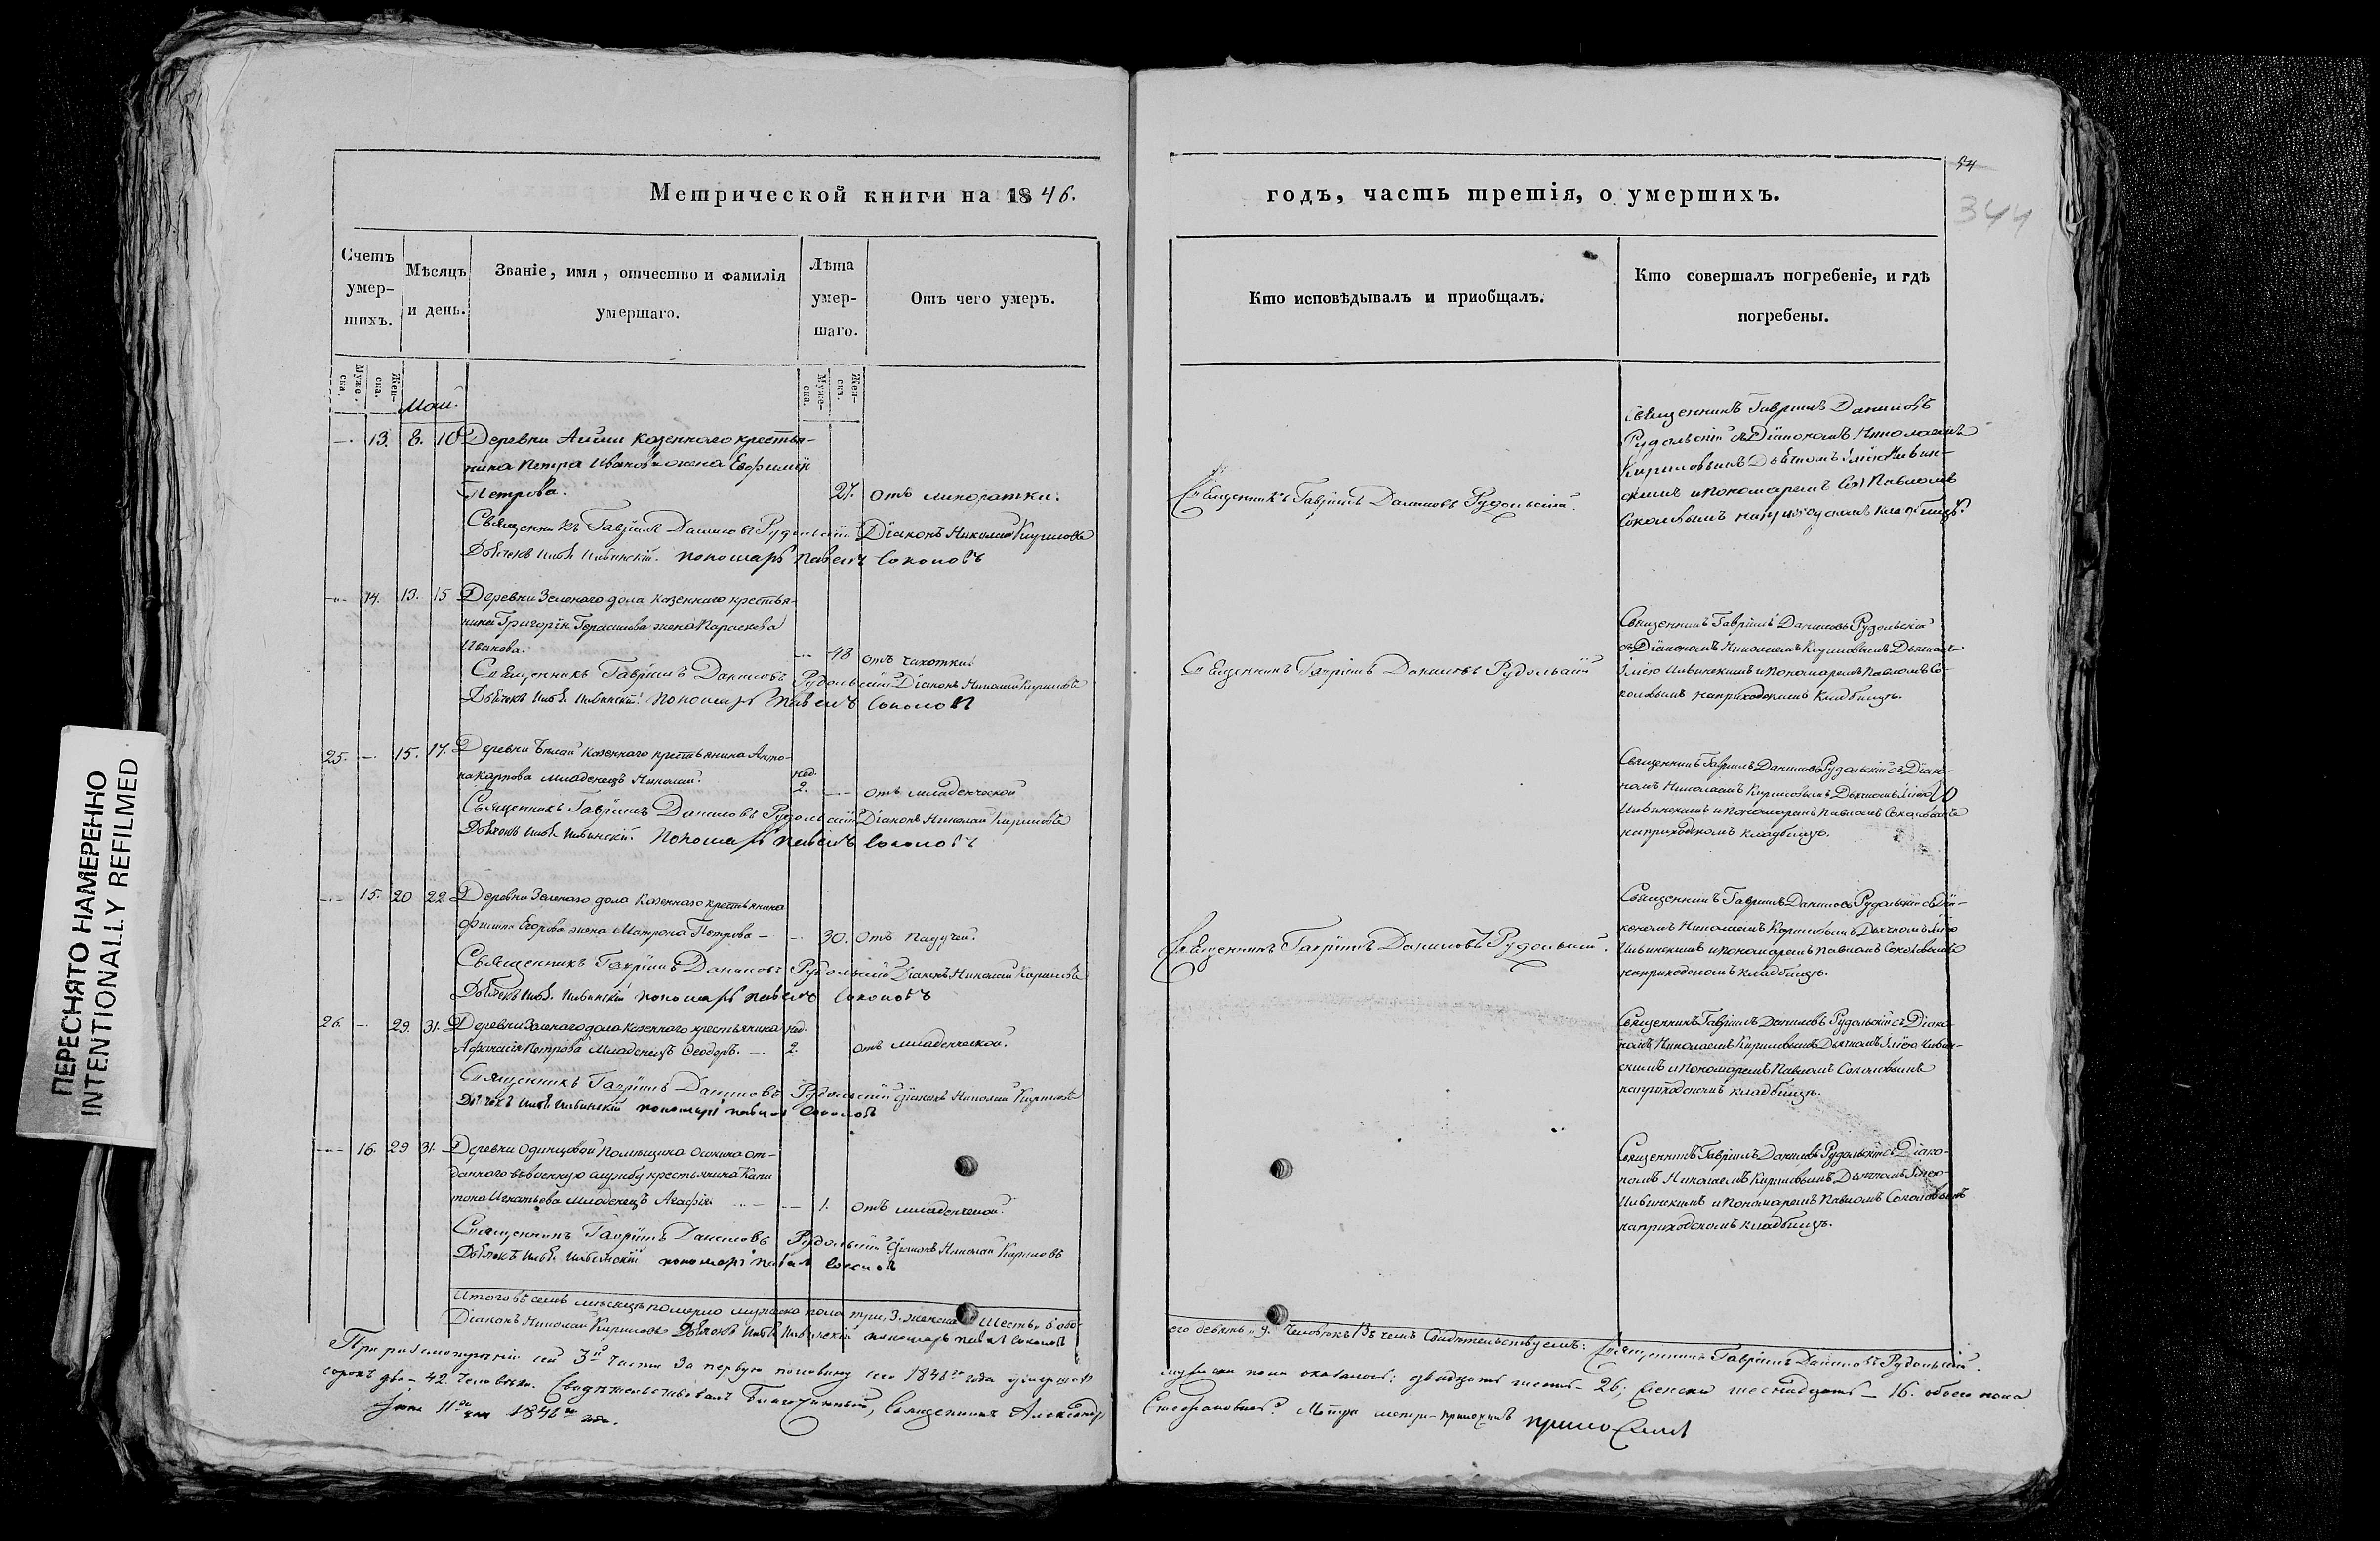 Метрической книги на 1846.
Счетъ умер-шихъ.
Мѣсяцъ и день.
Званіе, имя, отчество и фамилія умершаго.
Лѣта умер-шаго.
Отъ чего умеръ.
Муже-ска.
Жен-ска.
Муже-ска.
Жен-ска.
Маій.
— 13. 8. 10 Деревни казеннаго крестья-
нина Петра Иванова жена Евфимія
Петрова. 27. отъ лихорадки.
Священникъ Гавріилъ Даниловъ Рудольскій Діаконъ Николай Кириловъ
Дьячекъ Илья Ивинскій. пономарь Павелъ Соколовъ
— 14. 13. 15 Деревни Зеленаго дола казеннаго крестья-
нина Григорія Герасимова жена Параскева
Иванова. — 48 отъ чахотки.
Священникъ Гавріилъ Даниловъ Рудольскій Діаконъ Николай Кириловъ
Дьячекъ Илья Ивинскій. пономарь Павелъ Соколов
25. — 15. 17. Деревни казеннаго крестьянина
Карпова младенецъ Николай. нед. 2. — отъ младенческой
Священникъ Гавріилъ Даниловъ Рудольскій Діаконъ Николай Кириловъ
Дьячекъ Илья Ивинскій. пономарь Павелъ Соколовъ
— 15. 20 22. Деревни Зеленаго дола казеннаго крестьянина
Филипа Егорова жена Матрона Петрова — — 30. отъ падучей.
Священникъ Гавріилъ Даниловъ Рудольскій Діаконъ Николай Кириловъ
Дьячекъ Илья Ивинскій пономарь Павелъ Соколовъ
26. — 29. 31. Деревни Зеленаго дола казеннаго крестьянина нед.
Афанасія Петрова младенецъ Феодоръ. — 2. отъ младенческой.
Священникъ Гавріилъ Даниловъ Рудольскій Діаконъ Николай Кириловъ
Дьячекъ Илья Ивинскій пономарь Павелъ Соколовъ
— 16. 29 31. Деревни Одинцовой помѣщика от-
даннаго въ военную службу крестьянина Капи
тона Игнатьева младенецъ Агафія — — 1. отъ младенческой.
Священникъ Гавріилъ Даниловъ Рудольскій Діаконъ Николай Кириловъ
Дьячекъ Илья Ивинскій пономарь Павелъ Соколов
Итого въ семъ мѣсяцѣ померло мужеска пола три, 3. женска шесть, 6 обо-
Діаконъ Николай Кириловъ Дьячекъ Илья Ивинскій пономарь Павел Соколов
При разсмотреніи сей 3й части за первую половину сего 1846го года умершихъ
сорокъ два — 42. человѣка. Свидѣтельствовалъ Благочинный, Священникъ Александръ
Іюня 11го дня 1846го года.
годъ, часть третія, о умершихъ.
54
344
Кто исповѣдывалъ и приобщалъ.
Кто совершалъ погребеніе, и гдѣ погребены.
Священникъ Гавріилъ Даниловъ Рудольскій.
Священникъ Гавріилъ Даниловъ
Рудольскій съ Діакономъ Николаемъ
Кириловымъ Дьячкомъ Ильею Ивин-
скимъ и пономаремъ Павломъ
Соколовымъ на приходскомъ кладбищѣ.
Священникъ Гавріилъ Даниловъ Рудольскій
Священникъ Гавріилъ Даниловъ Рудольскій
съ Діакономъ Николаемъ Кириловымъ Дьячкомъ
Ильею Ивинскимъ и пономаремъ Павломъ Со-
коловымъ на приходскомъ кладбищѣ.
Священникъ Гавріилъ Даниловъ Рудольскій съ Діако-
номъ Николаемъ Кириловымъ Дьячкомъ Ильею
Ивинскимъ и пономаремъ Павломъ Соколовымъ
на приходскомъ кладбищѣ.
Священникъ Гавріилъ Даниловъ Рудольскій.
Священникъ Гавріилъ Даниловъ Рудольскій съ Діа-
кономъ Николаемъ Кириловымъ Дьячкомъ Ильею
Ивинскимъ и пономаремъ Павломъ Соколовымъ
на приходскомъ кладбищѣ.
Священникъ Гавріилъ Даниловъ Рудольскій съ Діако-
номъ Николаемъ Кириловымъ Дьячкомъ Ильею Ивин-
скимъ и пономаремъ Павломъ Соколовымъ
на приходскомъ кладбищѣ.
Священникъ Гавріилъ Даниловъ Рудольскій съ Діако-
номъ Николаемъ Кириловымъ Дьячкомъ Ильею
Ивинскимъ и пономаремъ Павломъ Соколовымъ
на приходскомъ кладбищѣ.
его девять, 9. человѣкъ Въ чемъ свидѣтельствуемъ: Священникъ Гавріилъ Даниловъ Рудольскій.
мужеска пола оказалось: двадцать шесть — 26; женска шеснадцать — 16. обоего пола
ПЕРЕСНЯТО НАМЕРЕННО
INTENTIONALLY REFILMED